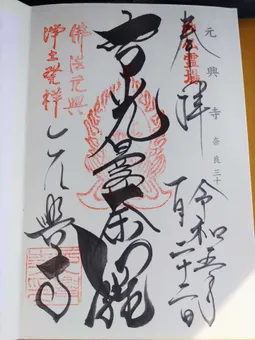 元興寺 奈良三十
奉拝
令和五年
一月二十二日
智光曼荼羅
元興寺
佛法元興
浄土發祥